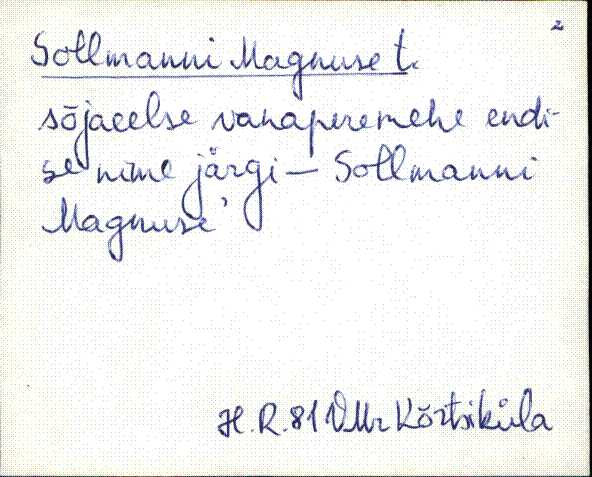 2
Sollmanni Magnuse t.
sõjaeelse vanaperemehe endi-
se nime järgi — Sollmanni
Magnuse'
H. R. 81 VMr Kõrtsiküla